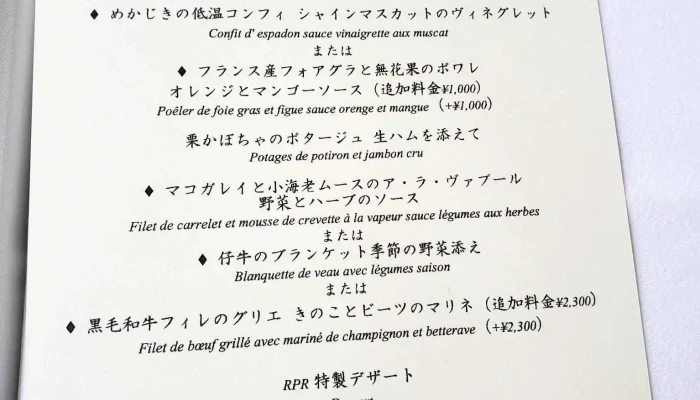 ♦ めかじきの低温コンフィ シャインマスカットのヴィネグレット
Confit d' espadon sauce vinaigrette aux muscat
または
♦ フランス産フォアグラと無花果のポワレ
オレンジとマンゴーソース（追加料金¥1,000）
Poêler de foie gras et figue sauce orenge et mangue（+¥1,000）
栗かぼちゃのポタージュ 生ハムを添えて
Potages de potiron et jambon cru
♦ マコガレイと小海老ムースのア・ラ・ヴァプール
野菜とハーブのソース
Filet de carrelet et mousse de crevette à la vapeur sauce légumes aux herbes
または
♦ 仔牛のブランケット季節の野菜添え
Blanquette de veau avec légumes saison
または
♦ 黒毛和牛フィレのグリエ きのことビーツのマリネ（追加料金¥2,300）
Filet de bœuf grillé avec mariné de champignon et betterave（+¥2,300）
RPR 特製デザート